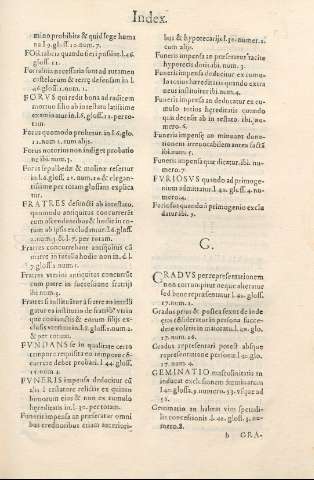 Index.
mino prohibita & quid lege huma
na l.9. gloss.12. num.7.
FOR tuitu quando fieri possint. l.46.
gloss. 11.
Formalia necessaria sunt ad autamen
custelarum & teire defensam in l.
46. gloss. 1. num. 1.
FORVS qui redit bona ad radicem
mortuo filio ab intestato latissime
examinatur in l.8. gloss. 12. per to-
ram.
Forus quomodo probetur. in l.6. glo.
11. num. 1. cum alijs.
Forus notorius non indiget probatio
ne ibi. num. 3.
Forus sepulbedæ & molinæ refertur
in l.6. gloss. 21. num. 10 & elegan-
tissime per totam glossam explica
tur.
FRATRES defuncti ab intestato,
quomodo antiquitus concurrerët
cum ascendentibus & hodie in to-
rum ab ipsis excludantur. l.6. gloss.
2. num. 3. & l.7. per totam.
Fratres concurrebant antiquitus cū
matre in totella hodie non in d. l.
7. gloss. 1. num. 1.
Fratres vterini antiquitus concurrūt
cum patre in successione fratris
ibi num. 4.
Fratres si instituitur à fratre an intelli
gatur ex institutis de fratribus vtrin
que coniunctis & eorum filijs ex-
clusis vterinis in l.8. gloss. 2. num. 2.
& per totam.
FVNDANS se in qualitate certo
tempore requisita eo tempore cō-
currere debet probari. l.44. gloss.
11. num. 2.
FVNERIS impensa deducitur cū
alia. l. testatore relictis ex quinta
bonorum eius & non ex cumulo
hereditatis in l. 30. per totam.
Funeris impensa an præseratur omni
bus creditoribus etiam anteriori-
bus & hypotecarijs l.30. numer. 2.
cum alijs.
Funeris impensa an præferatur tacite
hypoteca dotis ibi. num. 3.
Funeris impensa deducitur ex cumu
lo totius hæreditatis quando extra
neus instituitur ibi. num. 4.
Funeris impensa an deducatur ex cu-
mulo totius hereditatis quando
quis decessit ab in testato. ibi. nu-
mero. 6.
Funeris impensæ an minuant dona-
tionem irreuocabilem antea factā
ibi. num. 5.
Funeris impensa quæ dicatur. ibi. nu-
mero. 7
FVRIOSVS quando ad primoge-
nium admittatur. l.40. gloss. 4. nu-
mero. 14.
Furiosus quando à primogenio exclu
datur ibi. 7.
G.
GRADVS per representationem
non corrumpitur neque alteratur
sed bene representatur l. 40. gloss.
17. num. 1.
Gradus prius & postea sexus & inde
etas cōsideratur in persona succe-
dere volētis in maioratu. l.40. glo.
17. num. 26.
Gradus representari potest absque
representatione personæ l.40. glo.
17. num. 4.
GEMINATIO masculinitatis an
inducat exclusionem feminarum
l.40. gloss. 3. numero. 53. vsque ad
50.
Geminatio an habeat vim specuali-
lis concessionis l.40. gloss. 3. nu-
mero. 8.
b GRA-